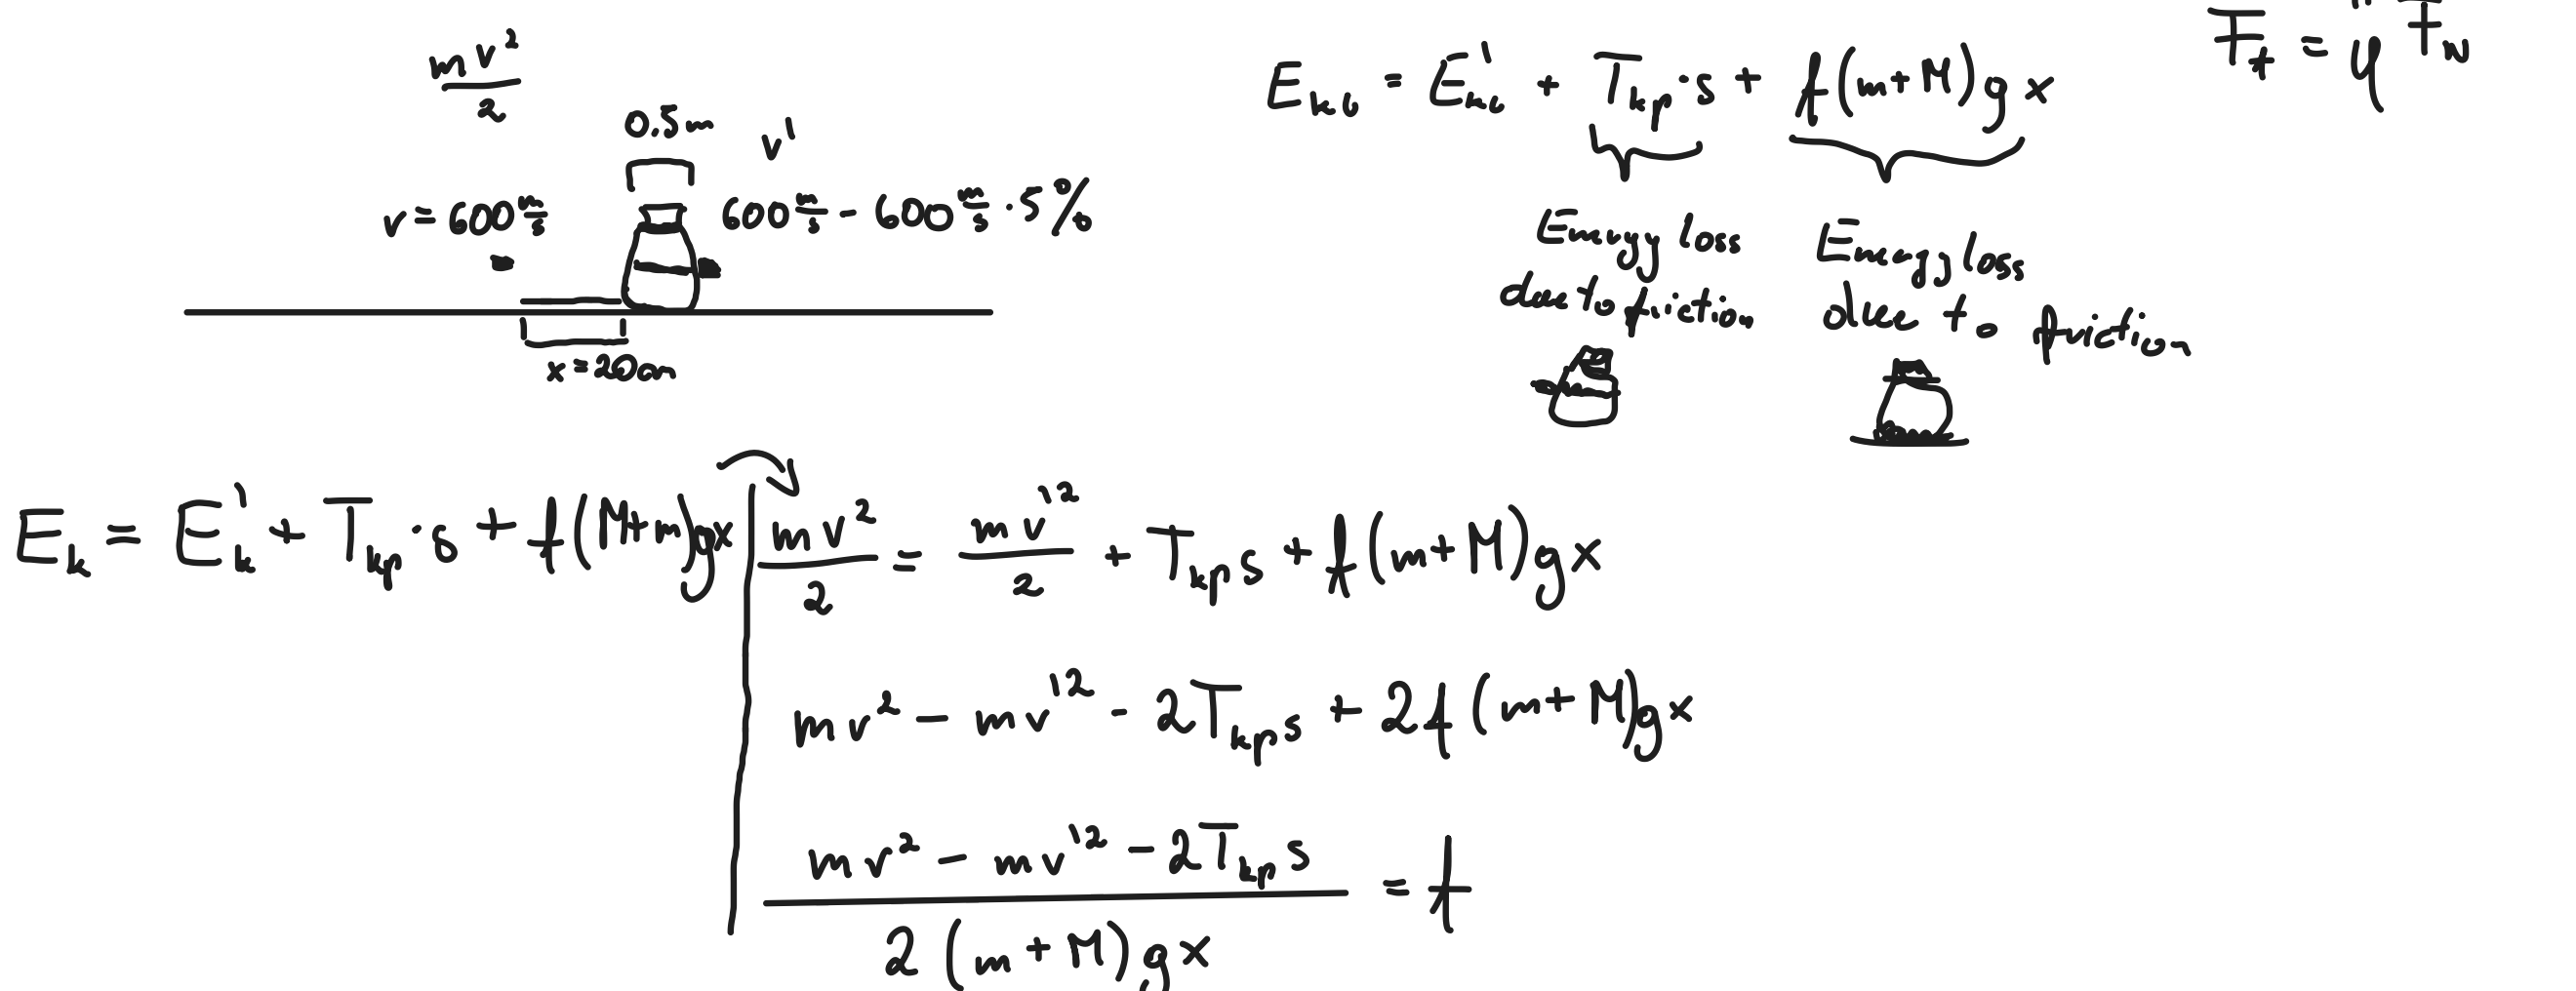 mv²/2
0.5m
v'
v = 600 m/s
600 m/s - 600 m/s · 5%
x = 20cm
E_k6 = E'_k6 + T_kp · s + f(m+M)gx
Energy loss
due to friction
Energy loss
due to friction
F_t = φ F_N
E_k = E'_k + T_kp · s + f(M+m)gx
mv²/2 = mv'²/2 + T_kp s + f(m+M)gx
mv² - mv'² - 2T_kp s + 2f(m+M)gx
(mv² - mv'² - 2T_kp s) / (2(m+M)gx) = f